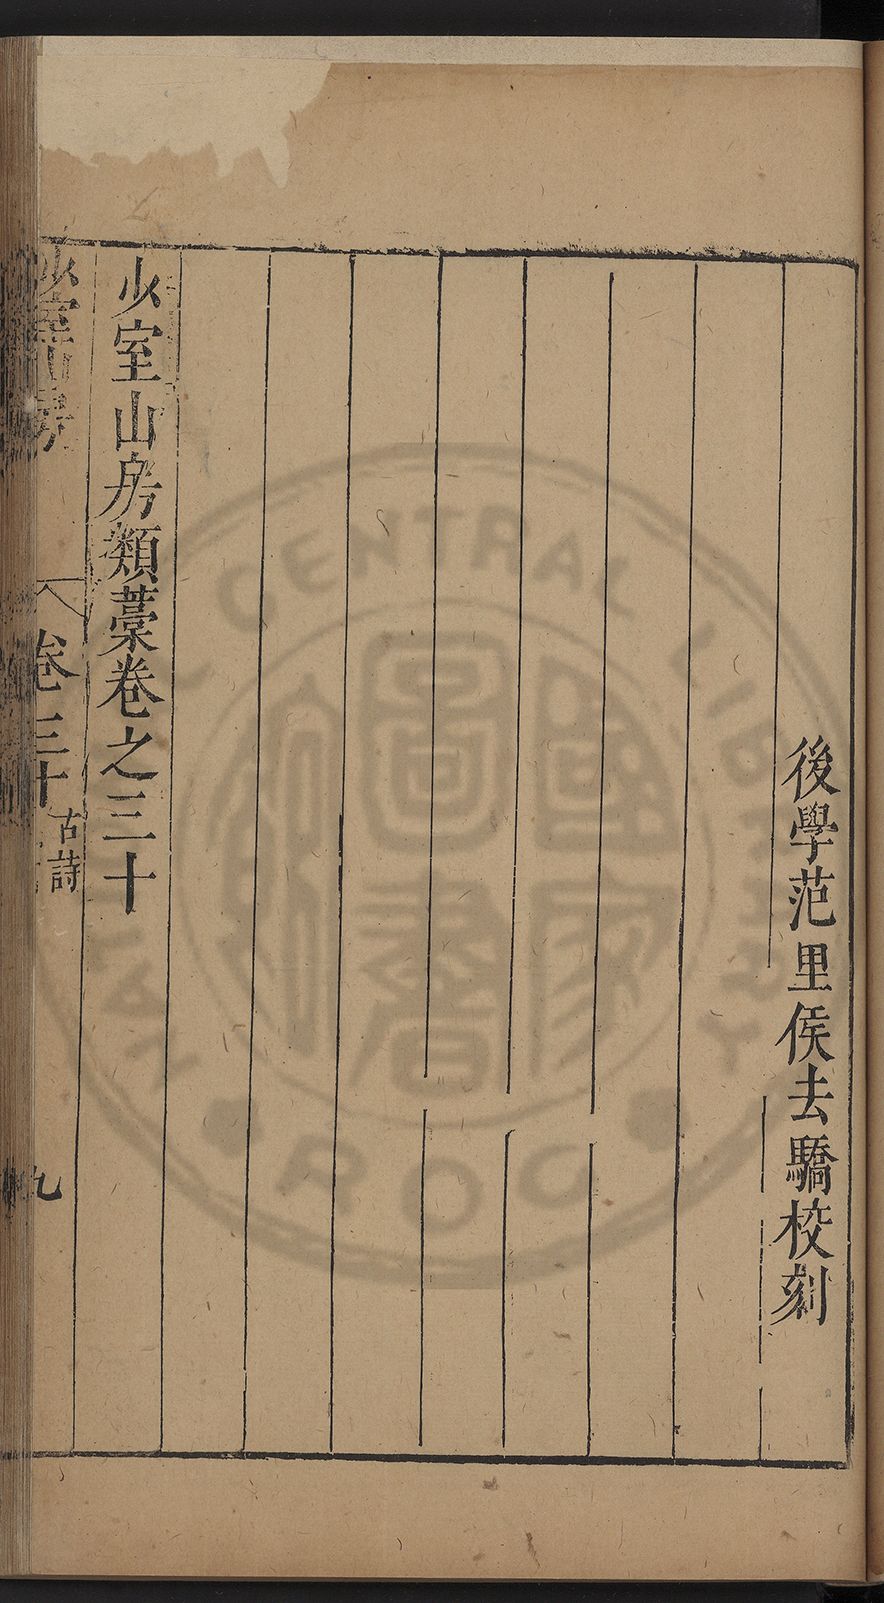 後學范里侯去驕校刻
少室山房類藁卷之三十
少室山房
卷三十
古詩
九
CENTRAL LIBRARY
R.O.C.
國家圖書